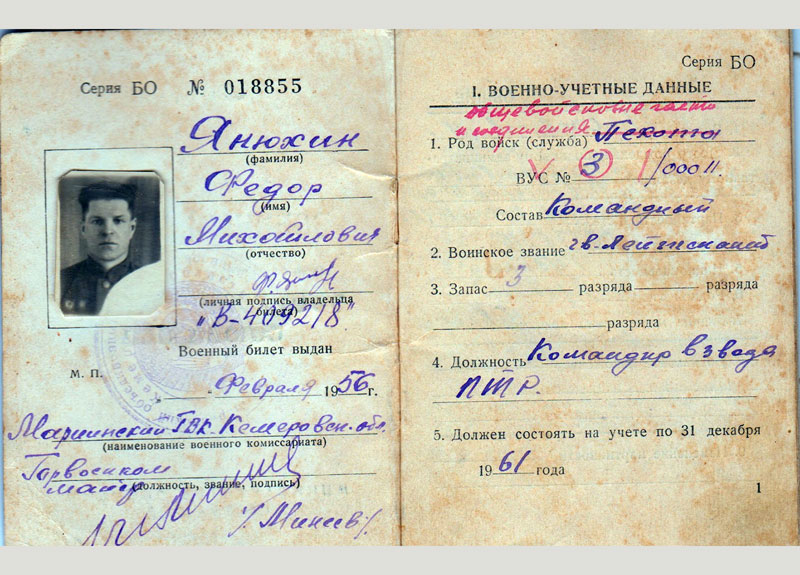 Серия БО № 018855
Янюхин
(фамилия)
Федор
(имя)
Михайлович
(отчество)
(личная подпись владельца билета)
"В-4092/8"
Военный билет выдан
М. П.
Февраля 1956 г.
Мариинский ГВК Кемеровск. обл.
(наименование военного комиссариата)
Горвоенком
(должность, звание, подпись)
/Минив/
Серия БО
I. ВОЕННО-УЧЕТНЫЕ ДАННЫЕ
общевойсковые части
и соединения
1. Род войск (службa) Пехота
ВУС № 3 /00011.
Состав Командный
2. Воинское звание гв-Лейтенант
3. Запас 3 разряда разряда
разряда
4. Должность Командир взвода
ПТР.
5. Должен состоять на учете по 31 декабря
1961 года
1